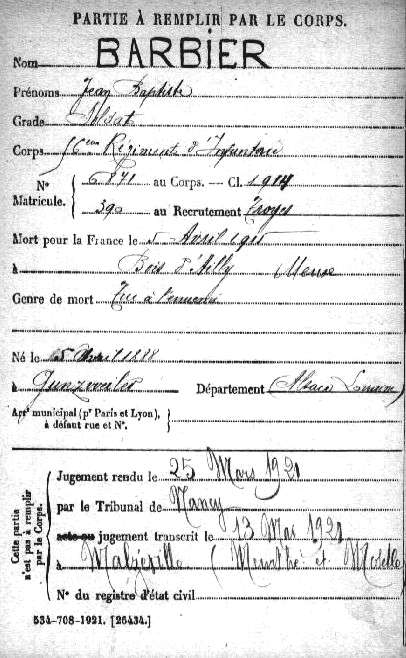 PARTIE À REMPLIR PAR LE CORPS.
Nom BARBIER
Prénoms Jean Baptiste
Grade Soldat
Corps 56eme Régiment d'Infanterie
N° Matricule. 6871 au Corps. — Cl. 1914
390 au Recrutement Troyes
Mort pour la France le 5 Avril 1915
à Bois d'Ailly (Meuse
Genre de mort Tué à l'ennemi
Né le 1888
à Département (Alsace Lorraine)
Arr' municipal (p' Paris et Lyon),
à défaut rue et N°.
Cette partie n'est pas à remplir par le Corps.
Jugement rendu le 25 Mars 1921
par le Tribunal de Nancy
acte ou jugement transcrit le 13 Mai 1921
à Malzéville (Meurthe et Moselle)
N° du registre d'état civil
534-708-1921. [26434.]